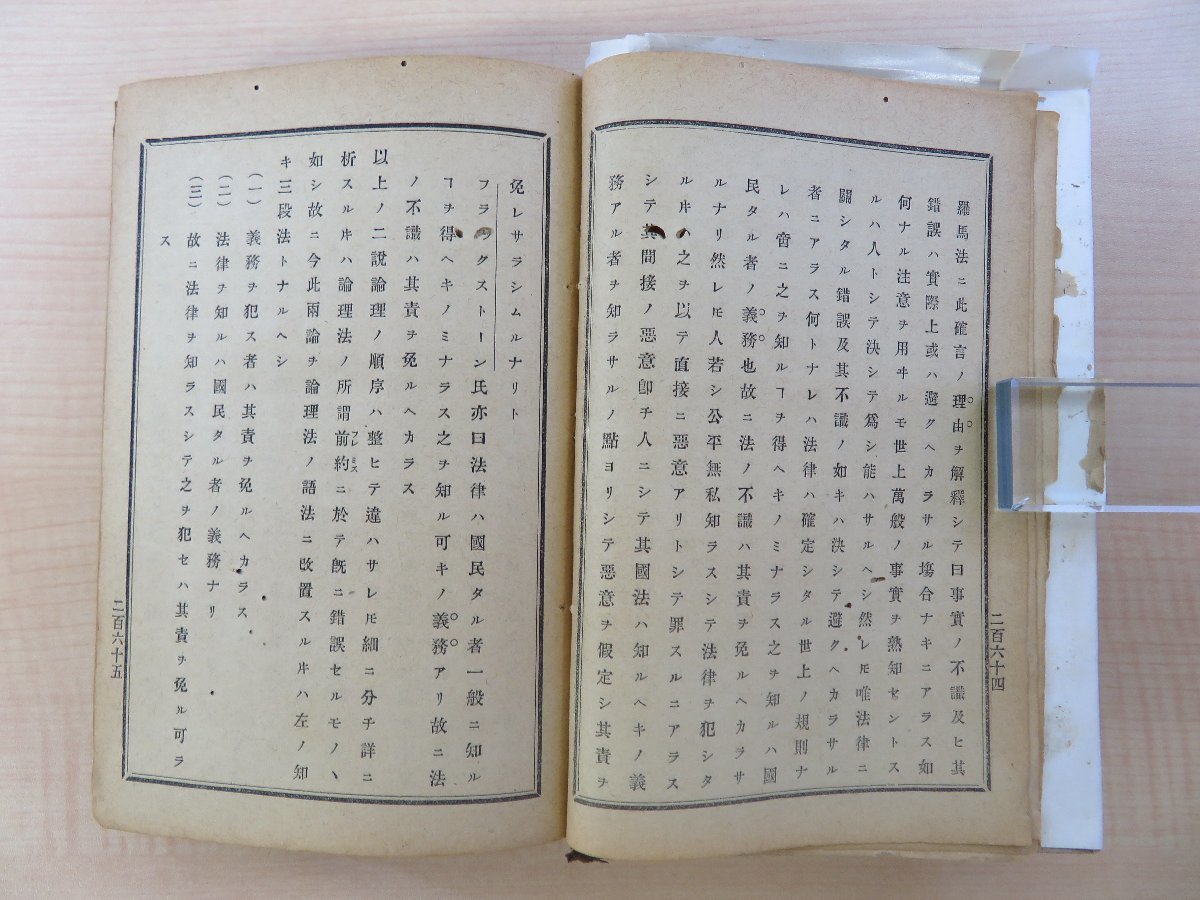 羅馬法ニ此確言ノ理由ヲ解釋シテ曰事實ノ不識及ヒ其
錯誤ハ實際上或ハ避クヘカラサル塲合ナキニアラス如
何ナル注意ヲ用ヰルモ世上萬般ノ事實ヲ熟知セントス
ルハ人トシテ決シテ爲シ能ハサルヘシ然レ𪜈唯法律ニ
關シタル錯誤及其不識ノ如キハ決シテ避クヘカラサル
者ニアラス何トナレハ法律ハ確定シタル世上ノ規則ナ
レハ啻ニ之ヲ知ルヿヲ得ヘキノミナラス之ヲ知ルハ國
民タル者ノ義務也故ニ法ノ不識ハ其責ヲ免ルヘカラサ
ルナリ然レ𪜈人若シ公平無私知ラスシテ法律ヲ犯シタ
ル𪜈ハ之ヲ以テ直接ニ惡意アリトシテ罪スルニアラス
シテ其間接ノ惡意卽チ人ニシテ其國法ハ知ルヘキノ義
務アル者ヲ知ラサルノ點ヨリシテ惡意ヲ假定シ其責ヲ
二百六十四
免レサラシムルナリト
フラックストーン氏亦曰法律ハ國民タル者一般ニ知ル
ヿヲ得ヘキノミナラス之ヲ知ル可キノ義務アリ故ニ法
ノ不識ハ其責ヲ免ルヘカラス
以上ノ二說論理ノ順序ハ整ヒテ違ハサレ𪜈細ニ分チ詳ニ
析スル𪜈ハ論理法ノ所謂前約ニ於テ旣ニ錯誤セルモノヽ
プレミス
如シ故ニ今此兩論ヲ論理法ノ語法ニ改置スル𪜈ハ左ノ知
キ三段法トナルヘシ
(一) 義務ヲ犯ス者ハ其責ヲ免ルヘカラス
(二) 法律ヲ知ルハ國民タル者ノ義務ナリ
(三) 故ニ法律ヲ知ラスシテ之ヲ犯セハ其責ヲ免ル可ラ
ス
二百六十五